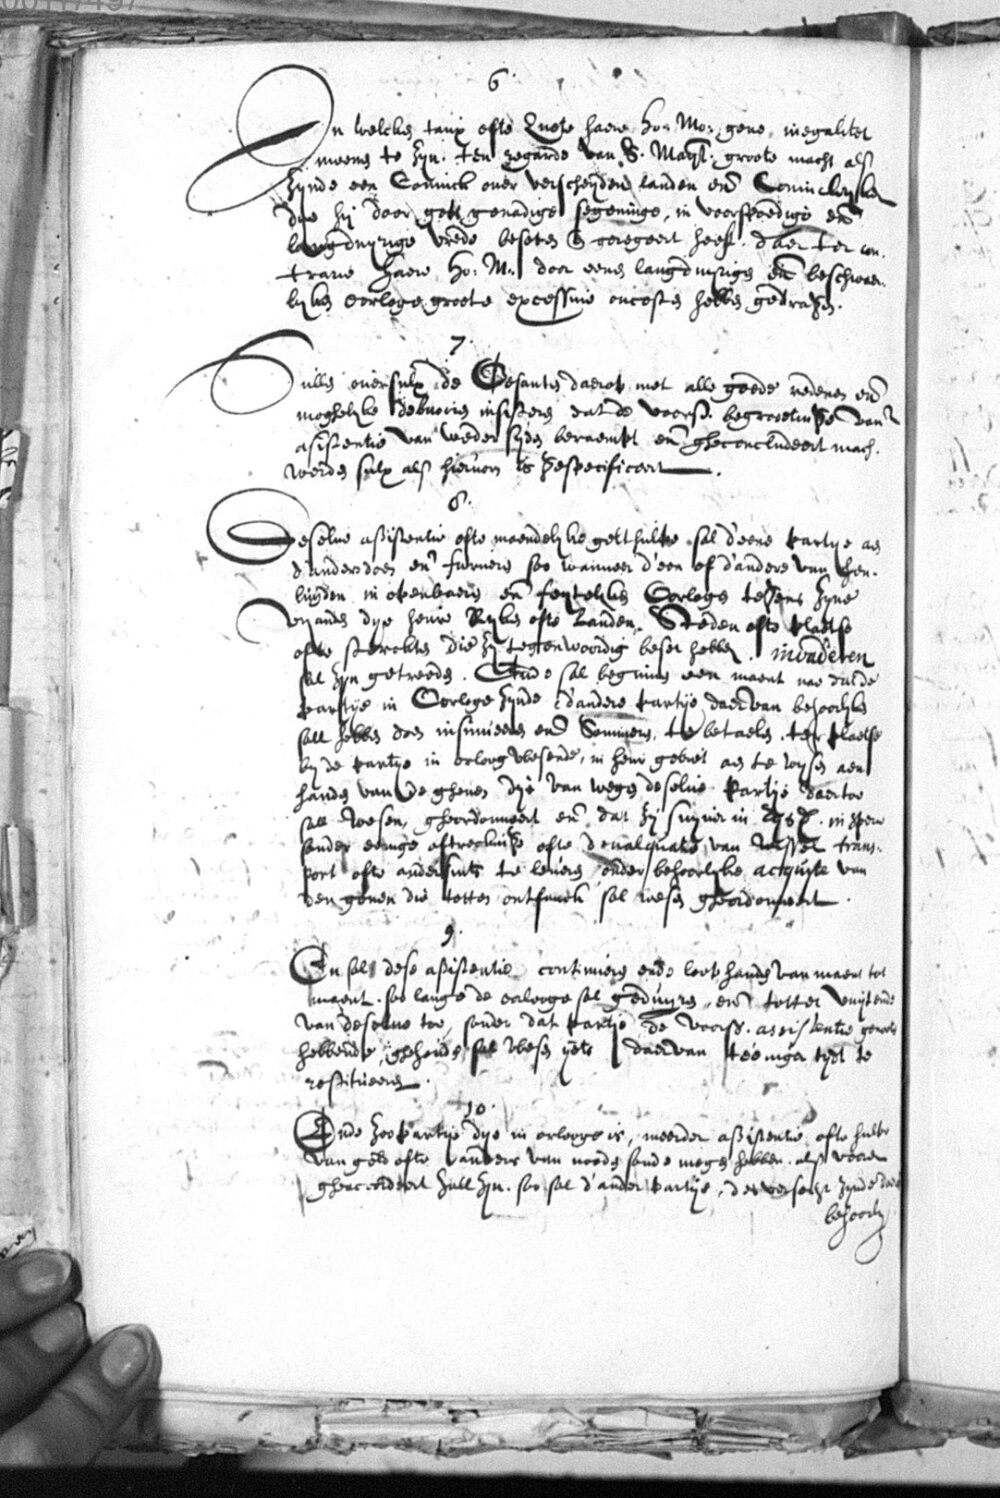 6.
In welcken taux ofte quote haere Ho: Mo: gene inegaliteit
meenen te zyn. ten regarde van S. Mayt. groote macht als
zynde een Coninck over verscheyden landen end Coninckryken
dye hy door gott genadige segeninge, in voorspoedige en
langduyrige vrede beseten en geregeert heeft. daer ter con-
trarie haere Ho: M: door eenen langduyrigen en beschwaer-
lyken oorloge groote excessive oncosten hebben gedragen.
7.
Sullen oversulx de Gesanten daerop met alle goede redenen end
moghelyke debvoiren insisteren dat de voorsz. begrootinge van
assistentie van weder syden beraempt en gheconcludeert mach
werden sulx als hiervoren is gespecificeert.
8.
Deselve assistentie ofte maendelyke gelt hulpe sal d'eene partye aen
d'ander doen en furneren soo wanneer d'een of d'andere van hen-
luyden in openbaere en feytelyke Oorloge tegens zyne
vyanden dye heure Ryken ofte Landen, Steden ofte plaetse
ofte sterckten die zy tegenwoordig beset hebben. invaderen
sal zyn getreden. Ende sal beginnen een maent nae dat de
partye in Oorloge zynde d'andere partye daervan behoorlyken
sall hebben doen insinueren end Sommeren, te betaelen ter plaetse
by de partye in orloog wesende, in heur gebiet aen te wysen aen
handen van de ghenen dye van wegen deselve partye daertoe
sall wesen gheordonneert en dat zy suyver in gelt. in specie
sonder eenige aftreckinge ofte devalquatie van wissel trans-
port ofte andersints te leveren onder behoorlyke acquyte van
den genen die totten ontfanck sal wesen gheordonneert.
9.
En sal dese assistentie continueren ende loop handen van maent tot
maent. soo lange de oorloge sal geduyren, end totter uuyteinde
van deselve toe, sonder dat partye de voorsz. assistentie genoten
hebbende, gehouden sal wesen yets daervan t'eeniger tyt te
restitueeren.
10.
Ende zoo partye dye in orloge is, meerder assistentie ofte hulpe
van geld ofte anders van nooden soude mogen hebben. als voren
gheaccordeert zall zyn. soo sal d'ander partye, des versocht zynde daer
behoorly